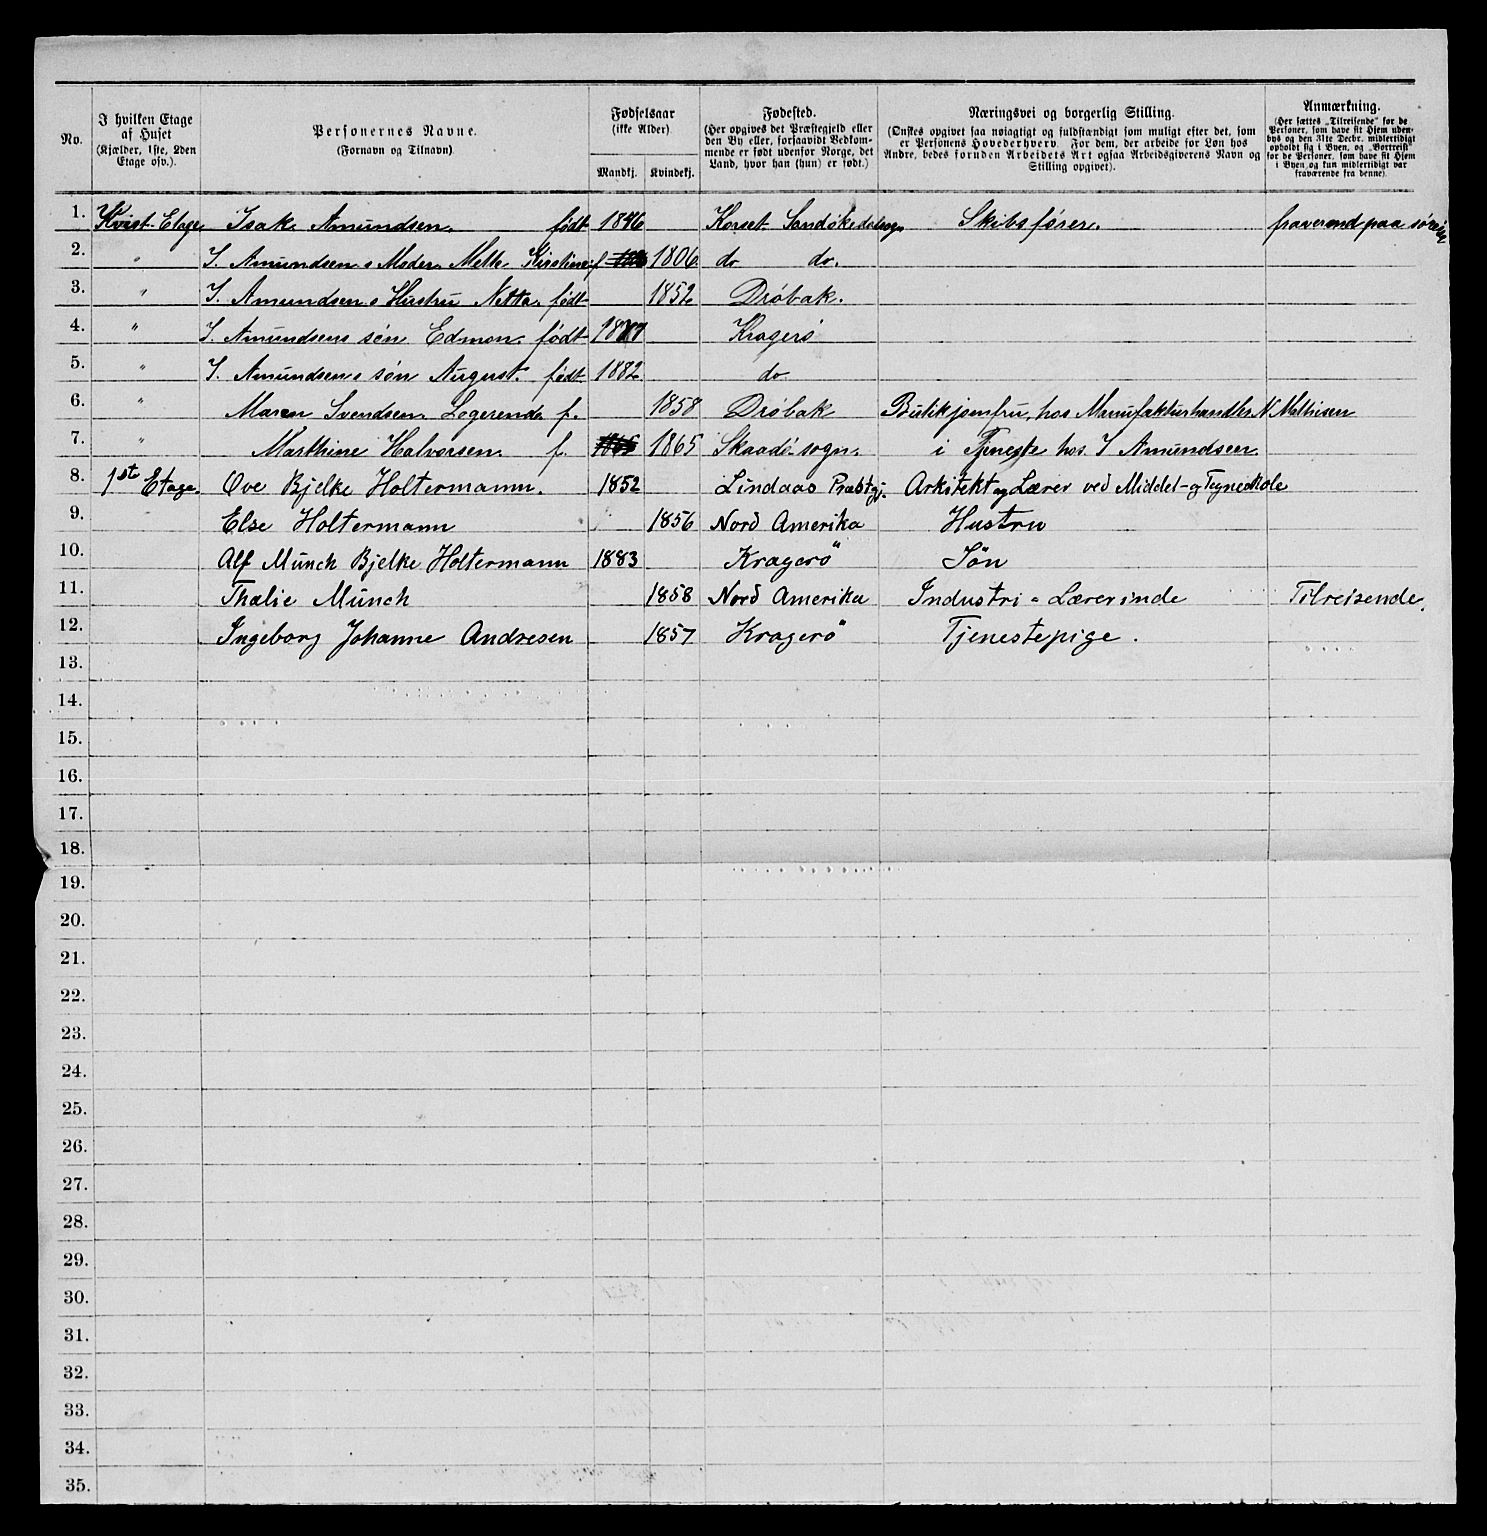 No.	I hvilken Etage af Huset (Kjælder, 1ste, 2den Etage osv.).	Personernes Navne. (Fornavn og Tilnavn)	Fødselsaar (ikke Alder). Mandkj. Kvindekj.	Fødested. (Her opgives det Præstegjeld eller den By eller, forsaavidt Vedkommende er født udenfor Norge, det Land, hvor han (hun) er født.)	Næringsvei og borgerlig Stilling. (Ønskes opgivet saa nøiagtigt og fuldstændigt som muligt efter det, som er Personens Hovederhverv. For dem, der arbeide for Løn hos Andre, bedes foruden Arbeidets Art ogsaa Arbeidsgiverens Navn og Stilling opgivet).	Anmærkning. (Her sættes „Tilreisende" for de Personer, som have sit Hjem udenbys og den 31te Decbr. midlertidigt opholdt sig i Byen, og „Bortreist" for de Personer, som have sit Hjem i Byen, og kun midlertidigt var fraværende fra denne).
1. Kvist-Etage Isak Amundsen. født 1846 Sandökedalsogn Skibsfører. fraverend paa
2. " I. Amundsens Moder Kirstine f 1806 do do.
3. " I. Amundsens Hustru Netta. født 1852. Dröbak.
4. " I. Amundsens sön Edmon. født 1877 Kragerö
5. " I. Amundsens sön August. født 1882. do
6. " Maren Svendsen. Logerende f. 1858 Dröbak Butikjomfru, hos Manufakturhandler N Mathisen
7. " Marthine Halvorsen. f. 1865 Skaadö sogn. i Tjeneste hos. I Amundsen.
8. 1st Etage. Ove Bjelke Holtermann. 1852 Lindaas Præstgj. Arkitekt og Lærer ved Middel- og Tegneskole
9. Else Holtermann 1856 Nord Amerika Hustru
10. Alf Münch Bjelke Holtermann 1883 Kragerö Søn
11. Thalie Münch 1858 Nord Amerika Industri-Lærerinde Tilreisende.
12. Ingeborg Johanne Andresen 1857 Kragerö Tjenestepige.
13.
14.
15.
16.
17.
18.
19.
20.
21.
22.
23.
24.
25.
26.
27.
28.
29.
30.
31.
32.
33.
34.
35.